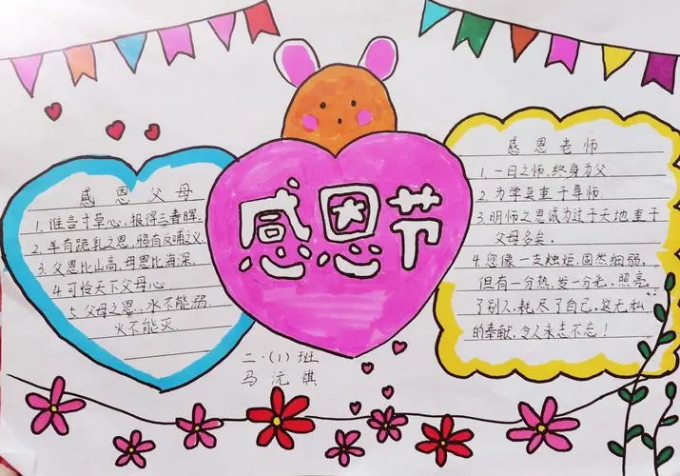 感恩父母
1.谁言寸草心,报得三春晖.
2.羊有跪乳之恩,鸦有反哺之义.
3.父恩比山高,母恩比海深.
4.可怜天下父母心
5.父母之恩,水不能溺,
火不能灭.
感恩节
感恩老师
1.一日之师,终身为父
2.为学莫重于尊师
3.明师之恩诚为过于天地重于
父母多矣.
4.您像一支烛炬,固然细弱,
但有一分热,发一分光,照亮
了别人,耗尽了自己,这无私
的奉献,令人永志不忘!
二·(1)班
马沅祺